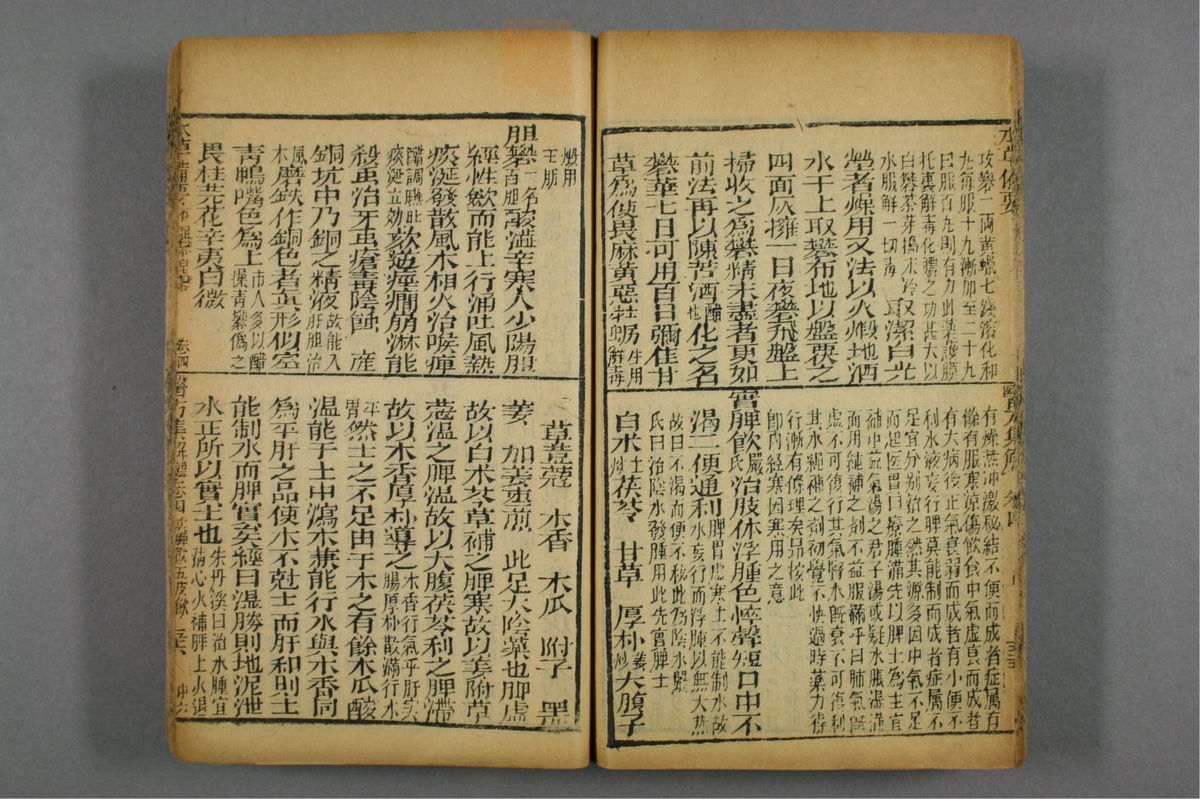 本草備要
攻礬一兩黃蠟七錢溶化和
丸每服十丸漸加至二十丸
日服百丸則有力此藥護膜
托裏解毒化膿之功甚大以
白礬茶芽搗末冷
水服解一切毒 取潔白光
瑩者煅用又法以火煅地洒
水于上取礬布地以盤覆之
四面灰擁一日夜礬飛盤上
掃收之為礬精未盡者更如
前法再以陳苦酒醋也化之名
礬華七日可用百日彌佳甘
草為使畏麻黃惡牡蠣生用解毒
醫方集解 卷四
有燥热沖激秘結不便而成者症属有
餘有服寒凉傷飲食中氣虛衰而成者
有大病後正氣衰弱而成者有小便不
利水液妄行脾莫能制而成者症属不
足宜分別治之然其源多因中氣不足
而起医胃曰療腫滿先以脾土為主宜
補中益氣湯六君子湯或疑水脹滿
而用純補之剤不益服滿乎曰肺氣既
虛不可復行其氣腎水既衰不可復利
其水純補之剤初覺不快過時藥力得
行漸有條理矣昂按此
卽內經塞因塞用之意
實脾飲嚴氏治肢体浮腫色悴聲短口中不
渴二便通利脾胃虛寒土不能制水故
水妄行而浮腫以無大热
故曰不渴而便不秘此為陰水嚴
氏曰治陰水發腫用此先實脾土
白术土炒茯苓 甘草 厚朴姜炒大腹子
煅用
生肌
胆礬一名石胆酸澀辛寒入少陽胆
經性歛而能上行涌吐風熱
痰涎發散風木相火治喉痺
醋調嚥吐
痰涎立効欬逆痙癇崩淋能
殺虫治牙虫瘡毒陰蝕 產
銅坑中乃銅之精液故能入肝胆治
風木磨鐵作銅色者真形似空
青鴨嘴色為上市人多以醋揉青礬偽之
畏桂芫花辛夷白微
草荳蔻 木香 木瓜 附子 黑
姜 加姜棗煎 此足太陰藥也脾虛
故以白术苓草補之脾寒故以姜附草
蔻溫之脾濕故以大腹茯苓利之脾滯
故以木香厚朴導之木香行氣平肝实
腸厚朴散滿行水
平胃然土之不足由于木之有餘木瓜酸
温能于土中瀉木兼能行水與木香同
為平肝之品使木不尅土而肝和則土
能制水而脾實矣經曰濕勝則地泥泄
水正所以實土也朱丹溪曰治水腫宜
清心火補脾土火退